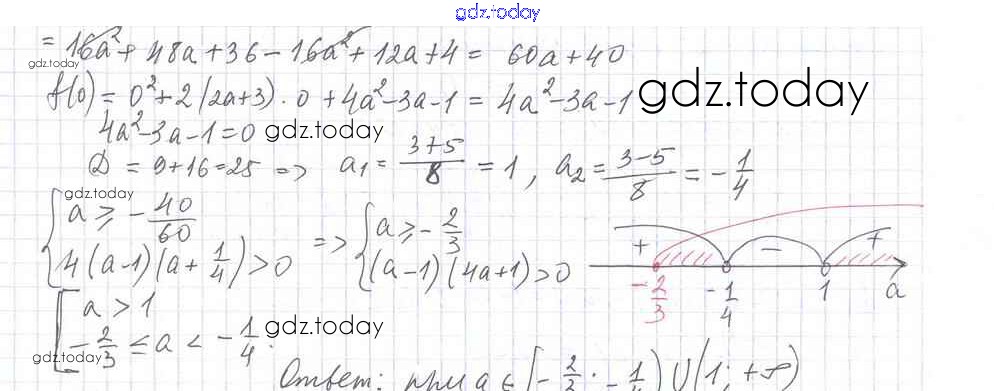 gdz.today
= 16a² + 48a + 36 - 16a² + 12a + 4 = 60a + 40
gdz.today
f(0) = 0² + 2(2a+3) · 0 + 4a² - 3a - 1 = 4a² - 3a - 1
gdz.today
4a² - 3a - 1 = 0
gdz.today
D = 9 + 16 = 25 => a₁ = (3+5)/8 = 1, a₂ = (3-5)/8 = -1/4
gdz.today
{ a ≥ -40/60 => { a ≥ -2/3
4(a-1)(a+1/4) > 0 (a-1)(4a+1) > 0
+ - +
-2/3 -1/4 1 a
[ a > 1
-2/3 ≤ a < -1/4.
gdz.today
gdz.today
Ответ: при a ∈ [-2/3; -1/4) ∪ (1; +∞)